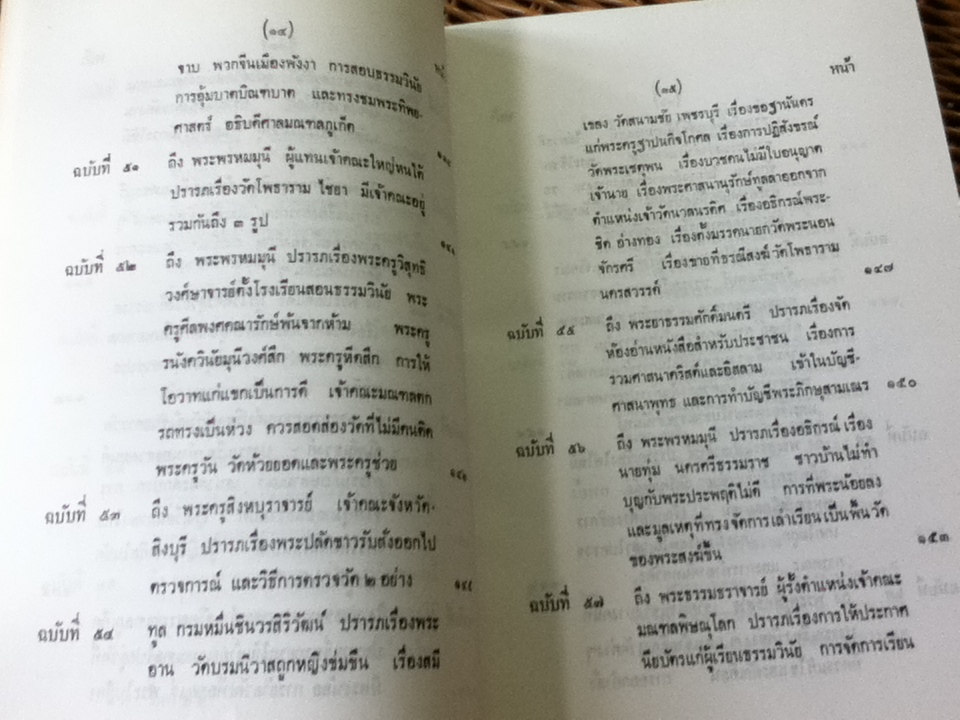 (๑๔)
จาบ พวกจีนเมืองพังงา การสอนธรรมวินัย
การอุ้มบาตบิณฑบาต และทรงชมพระทิพย-
ศาสตร์ อธิบดีศาลมณฑลภูเก็ต
ฉบับที่ ๕๑ ถึง พระพรหมมุนี ผู้แทนเจ้าคณะใหญ่หนใต้
ปรารภเรื่องวัดโพธาราม ไชยา มีเจ้าคณะอยู่
รวมกันถึง ๓ รูป
ฉบับที่ ๕๒ ถึง พระพรหมมุนี ปรารภเรื่องพระครูวิสุทธิ
วงศ์ษาจารย์ตั้งโรงเรียนสอนธรรมวินัย พระ
ครูศีลพงศคณารักษ์พ้นจากห้าม พระครู
รนังควินัยมุนีวงศ์สึก พระครูหีตสึก การให้
โอวาทแก่แขกเป็นการดี เจ้าคณะมณฑลตก
รถทรงเป็นห่วง ควรสอดส่องวัดที่ไม่มีคนคิด
พระครูวัน วัดห้วยยอดและพระครูช่วย
ฉบับที่ ๕๓ ถึง พระครูสิงหบุราจารย์ เจ้าคณะจังหวัด-
สิงบุรี ปรารภเรื่องพระปลัดขาวรับตั๋งออกไป
ตรวจการณ์ และวิธีการตรวจวัด ๒ อย่าง
ฉบับที่ ๕๔ ทูล กรมหมื่นชินวรสิริวัฒน์ ปรารภเรื่องพระ
อาน วัดบรมนิวาสถูกหญิงข่มขืน เรื่องสมี
(๑๕)
หน้า
เขลง วัดสนามชัย เพชรบุรี เรื่องขอฐานันดร
แก่พระครูฐาปนกิจโกศล เรื่องการปฏิสังขรณ์
วัดพระเชตุพน เรื่องบวชคนไม่มีใบอนุญาต
เจ้านาย เรื่องพระศาสนานุรักษ์ทูลลาออกจาก
ตำแหน่งเจ้าวัดนาลนรดิศ เรื่องอธิกรณ์พระ-
ชิต อ่างทอง เรื่องตั้งมรรคนายกวัดพระนอน
จักรศรี เรื่องขายที่ธรณีสงฆ์วัดโพธาราม
นครสวรรค์ ๑๔๗
ฉบับที่ ๕๕ ถึง พระยาธรรมศักดิ์มนตรี ปรารภเรื่องจัด
ห้องอ่านหนังสือสำหรับประชาชน เรื่องการ
รวมศาสนาคริสต์และอิสลาม เข้าในบัญชี-
ศาสนาพุทธ และการทำบัญชีพระภิกษุสามเณร ๑๕๐
ฉบับที่ ๕๖ ถึง พระพรหมมุนี ปรารภเรื่องอธิกรณ์ เรื่อง
นายทุ่ม นครศรีธรรมราช ชาวบ้านไม่ทำ
บุญกับพระประพฤติไม่ดี การที่พระน้อยลง
และมูลเหตุที่ทรงจัดการเล่าเรียนเป็นพื้นวัด
ของพระสงฆ์ขึ้น ๑๕๓
ฉบับที่ ๕๗ ถึง พระธรรมธราจารย์ ผู้รั้งตำแหน่งเจ้าคณะ
มณฑลพิษณุโลก ปรารภเรื่องการให้ประกาศ
นียบัตรแก่ผู้เรียนธรรมวินัย การจัดการเรียน